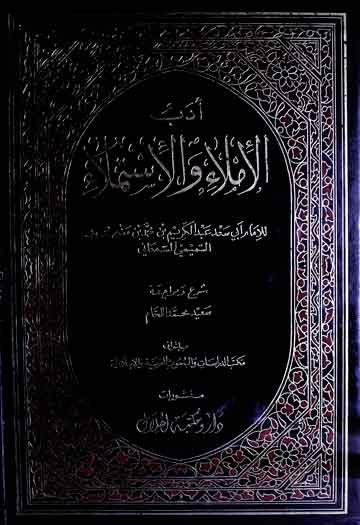 أدب
الإملاء والاستملاء
للإمام أبي سعد عبد الكريم بن محمد بن منصور
التميمي السمعاني
شرح ومراجعة
سعيد محمد اللحام
بإشراف
مكتب الدراسات والبحوث العربية والإسلامية
منشورات
دار ومكتبة الهلال